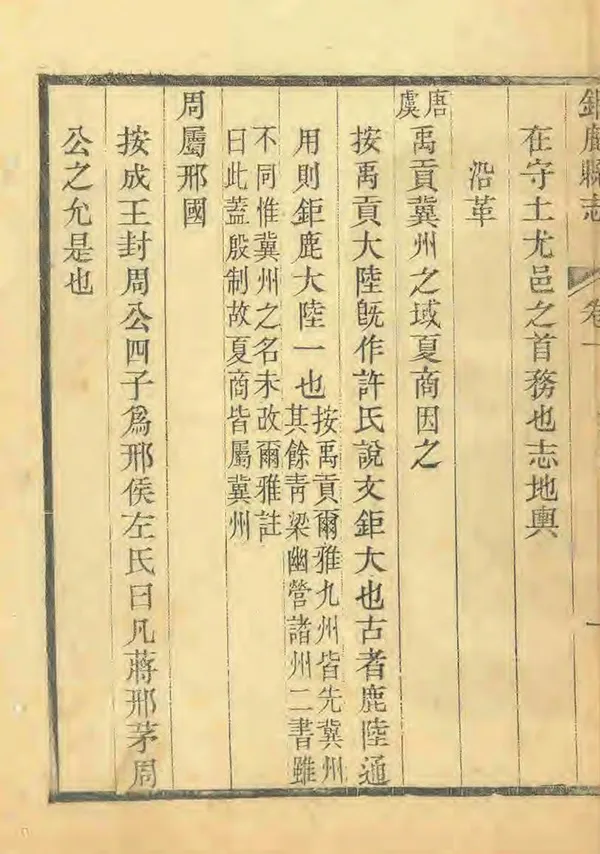 鉅鹿縣志
卷一
在守土尤邑之首務也志地輿
沿革
唐虞
禹貢冀州之域夏商因之
按禹貢大陸旣作許氏說文鉅大也古者鹿陸通
用則鉅鹿大陸一也
按禹貢爾雅九州皆先冀州
其餘青梁幽營諸州二書雖
不同惟冀州之名未改爾雅註
曰此蓋殷制故夏商皆屬冀州
周屬邢國
按成王封周公四子爲邢侯左氏曰凡蔣邢茅周
公之允是也